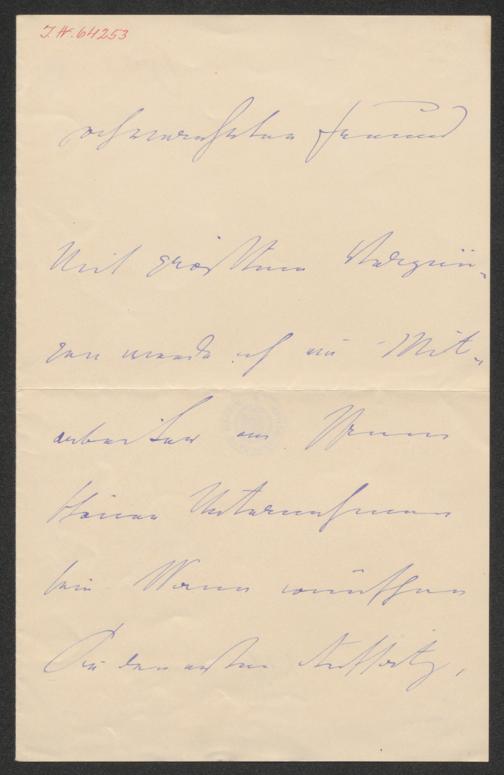 J.N. 64253
Hochverehrter Freund
Mit größtem Vergnü-
gen werde ich ein Mit-
arbeiter an Ihrem
schönen Unternehmen
sein. Wann wünschen
Sie den ersten Aufsatz,